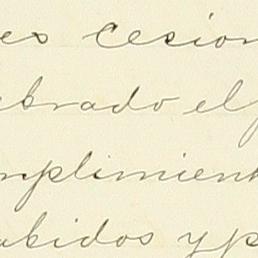 es cesion
brado el p
mplimient
abidos y p